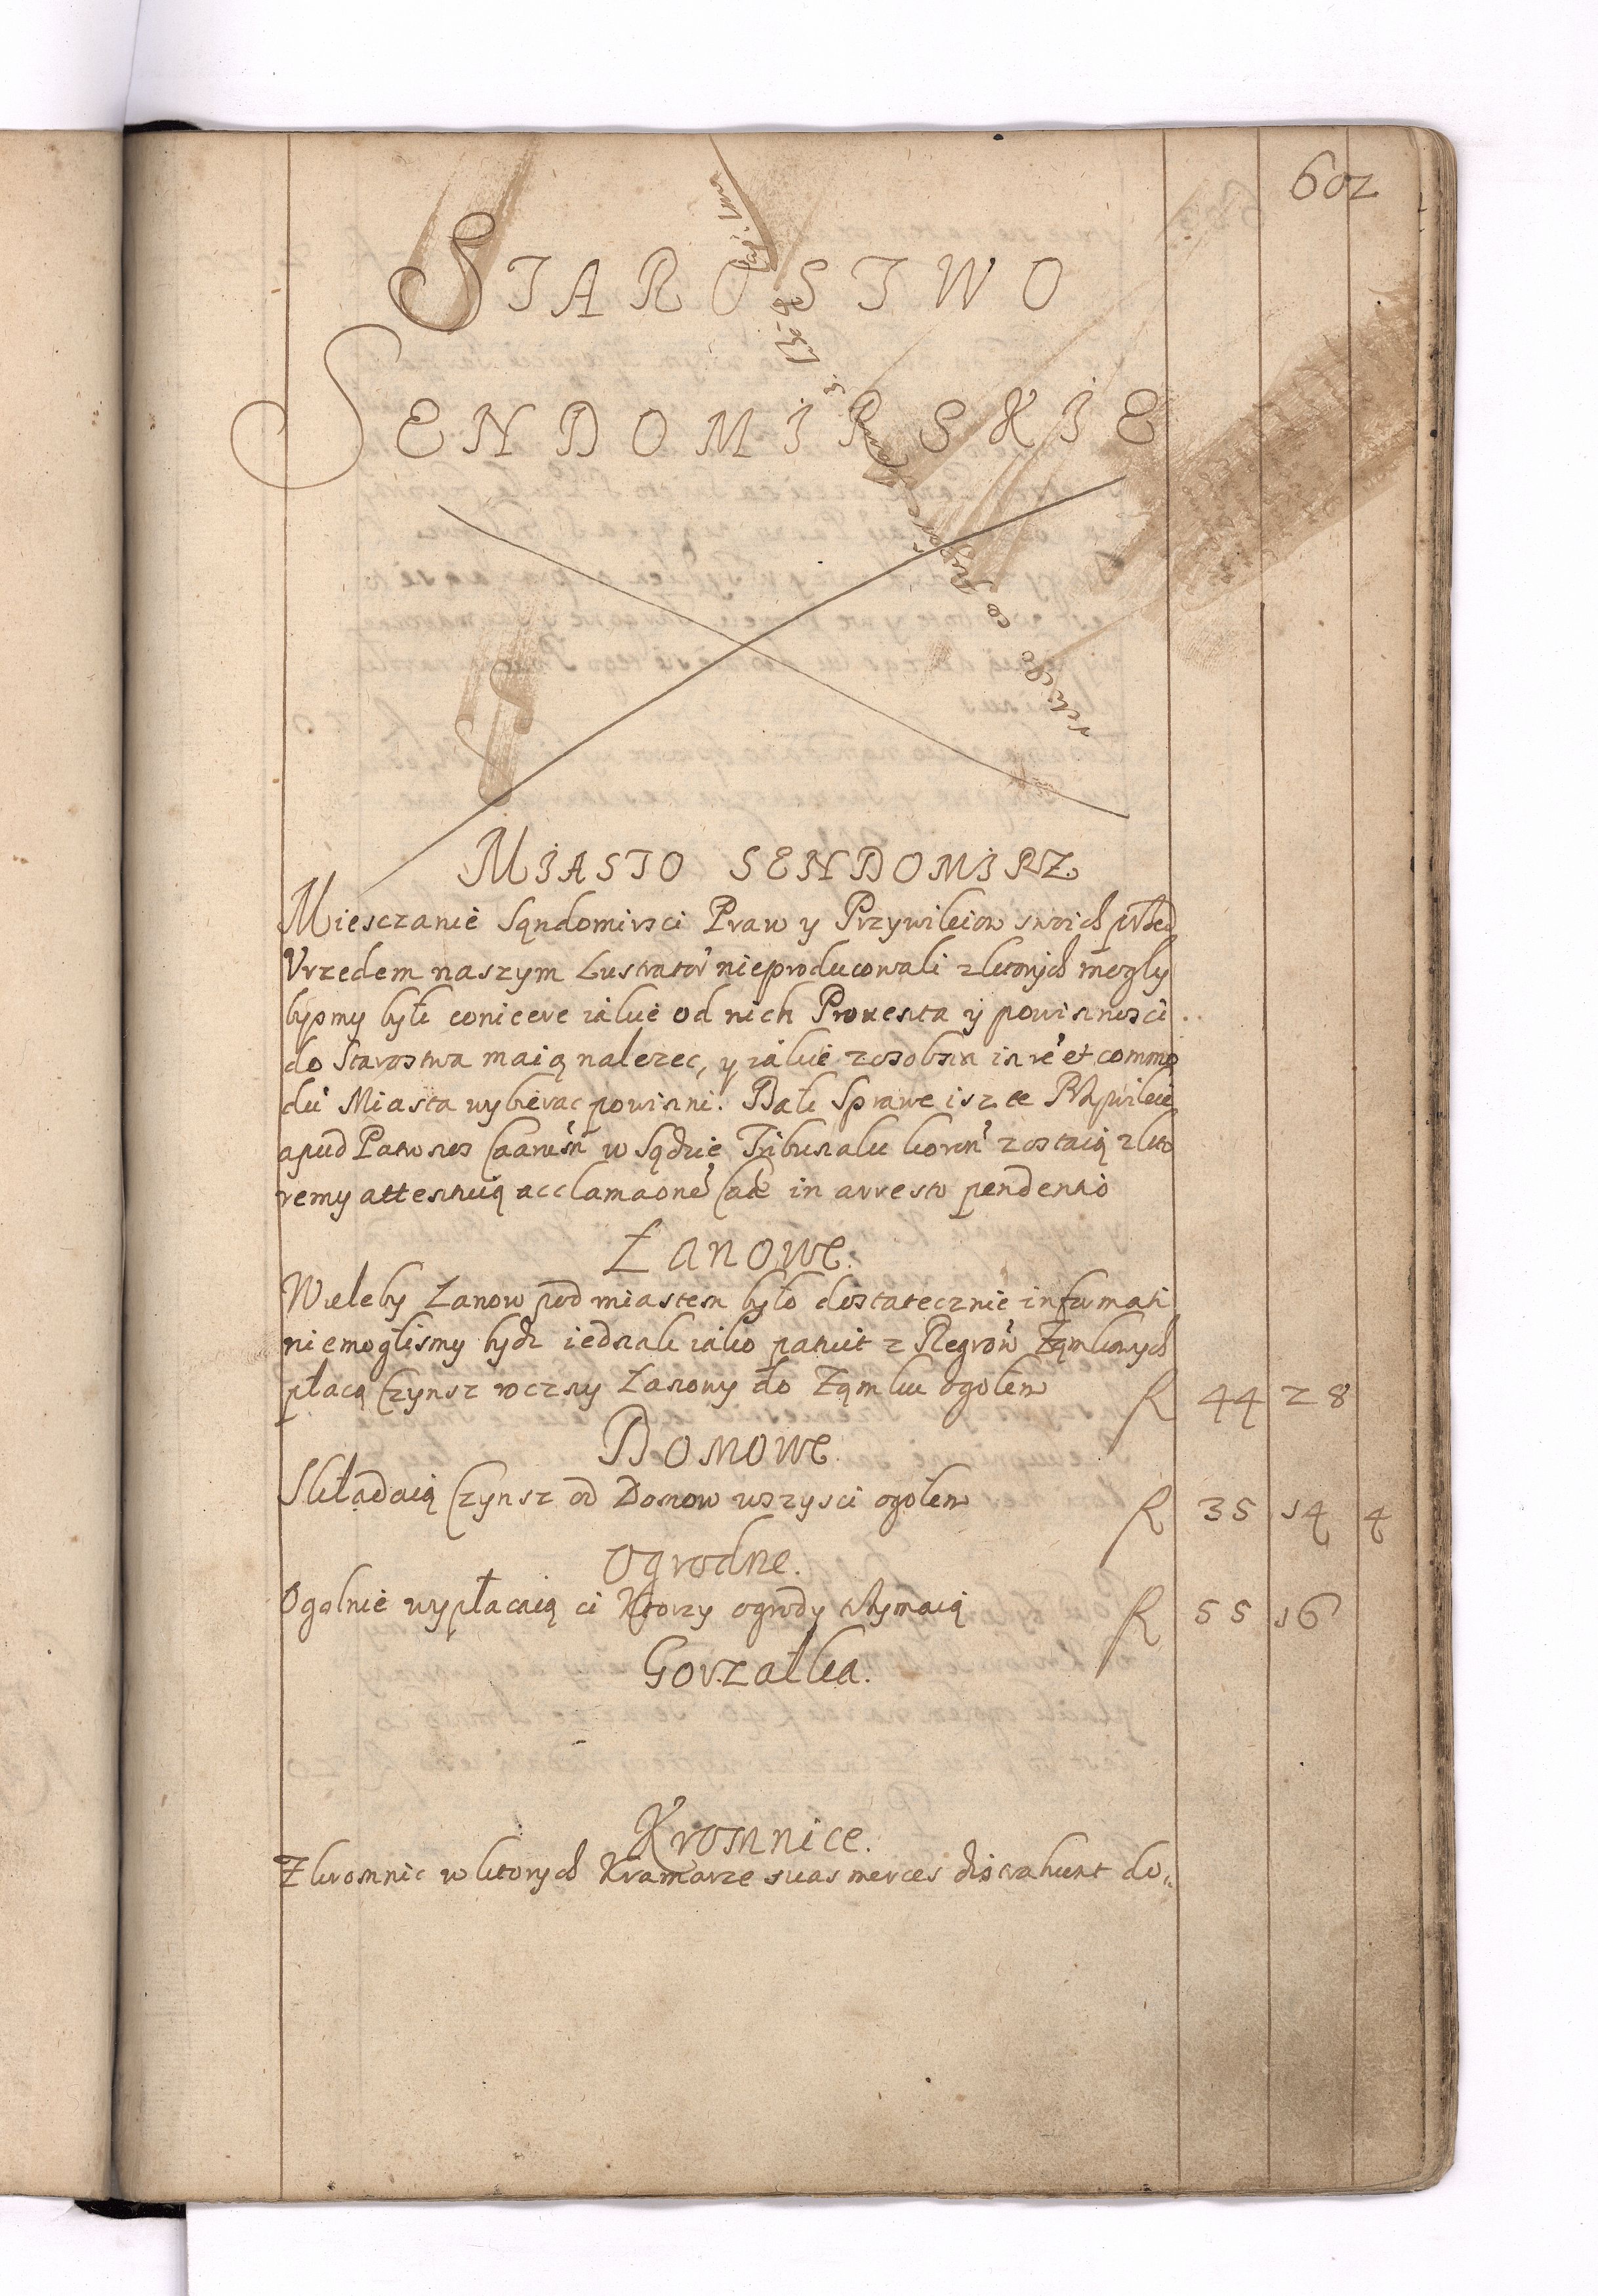 602
STAROSTWO
SENDOMIRSKIE
MIASTO SENDOMIRZ
Miesczanie Sąndomirsci Praw y Przywileiow swoich przed
Vrzedem naszym Lustrator nieproducowali z ktorych mogly
bysmy byli conicere iakie od nich Prouenta y powinnosci
do Starostwa maią nalezec, y iakie zosobna in re et commo
du Miasta wybierac powinni. Dali Sprawe isz te Przywileie
apud Patronos Caarum w Sądzie Tribunalu koron zostaią z kto
remy attentuią acclamaone in arresto pendenti
Łanowe.
Wieleby Lanow pod miastem było dostatecznie informati
niemoglismy bydz iednak iako patuit z Regrow Zamkowych
płacą Czynsz roczny Lanowy do Zamku ogołem f 44 28
Domowe.
Składaią Czynsz od Domow wszysci ogołem f 35 14 4
Ogrodne.
Ogolnie wypłacaią ci Ktorzy ogrody trzymaią f 55 16
Gorzałka.
Kromnice.
Z kromnic w ktorych Kramarze suas merces distrahunt do